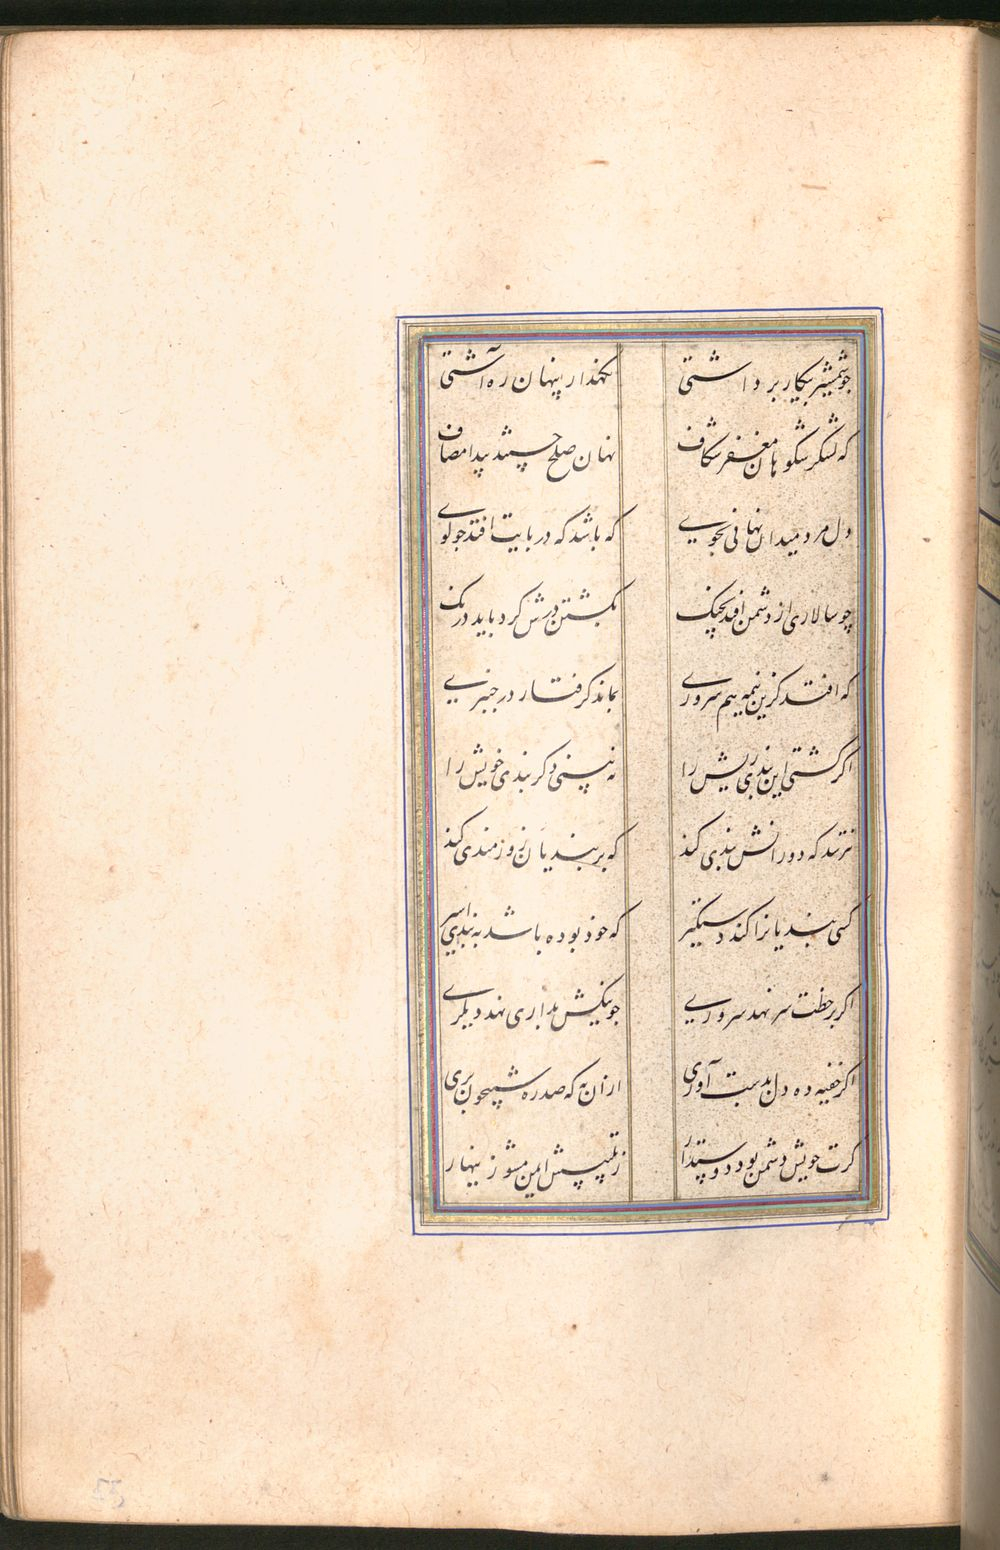 چو شمشیر پیکار برداشتی نگهدار پنهان ره آشتی
که لشکر شکوهان مغفر شکاف نهان صلح جستند پیدا مصاف
دل مرد میدان نهانی بجوی که باشد که در پایت افتد چو گوی
چو سالاری از دشمن افتد بچنک بکشتن درش کرد باید درنک
که افتد کزین نیمه هم سروری بماند کرفتار در چنبری
اکر کشتی این بندی ریش را نه بینی دکر بندی خویش را
نترسد که دورانش بندی کند که بر بندیان زورمندی کند
کسی بندیانرا کند دستکیر که خود بوده باشد به بندی اسیر
اکر بر خطت سر نهد سروری چو نیکش بداری نهد دیکری
اکر خفیه ده دل بدست آوری ازان به که صد ره شبیخون بری
کرت خویش دشمن بود دوستدار ز تلبیسش ایمن مشو زینهار